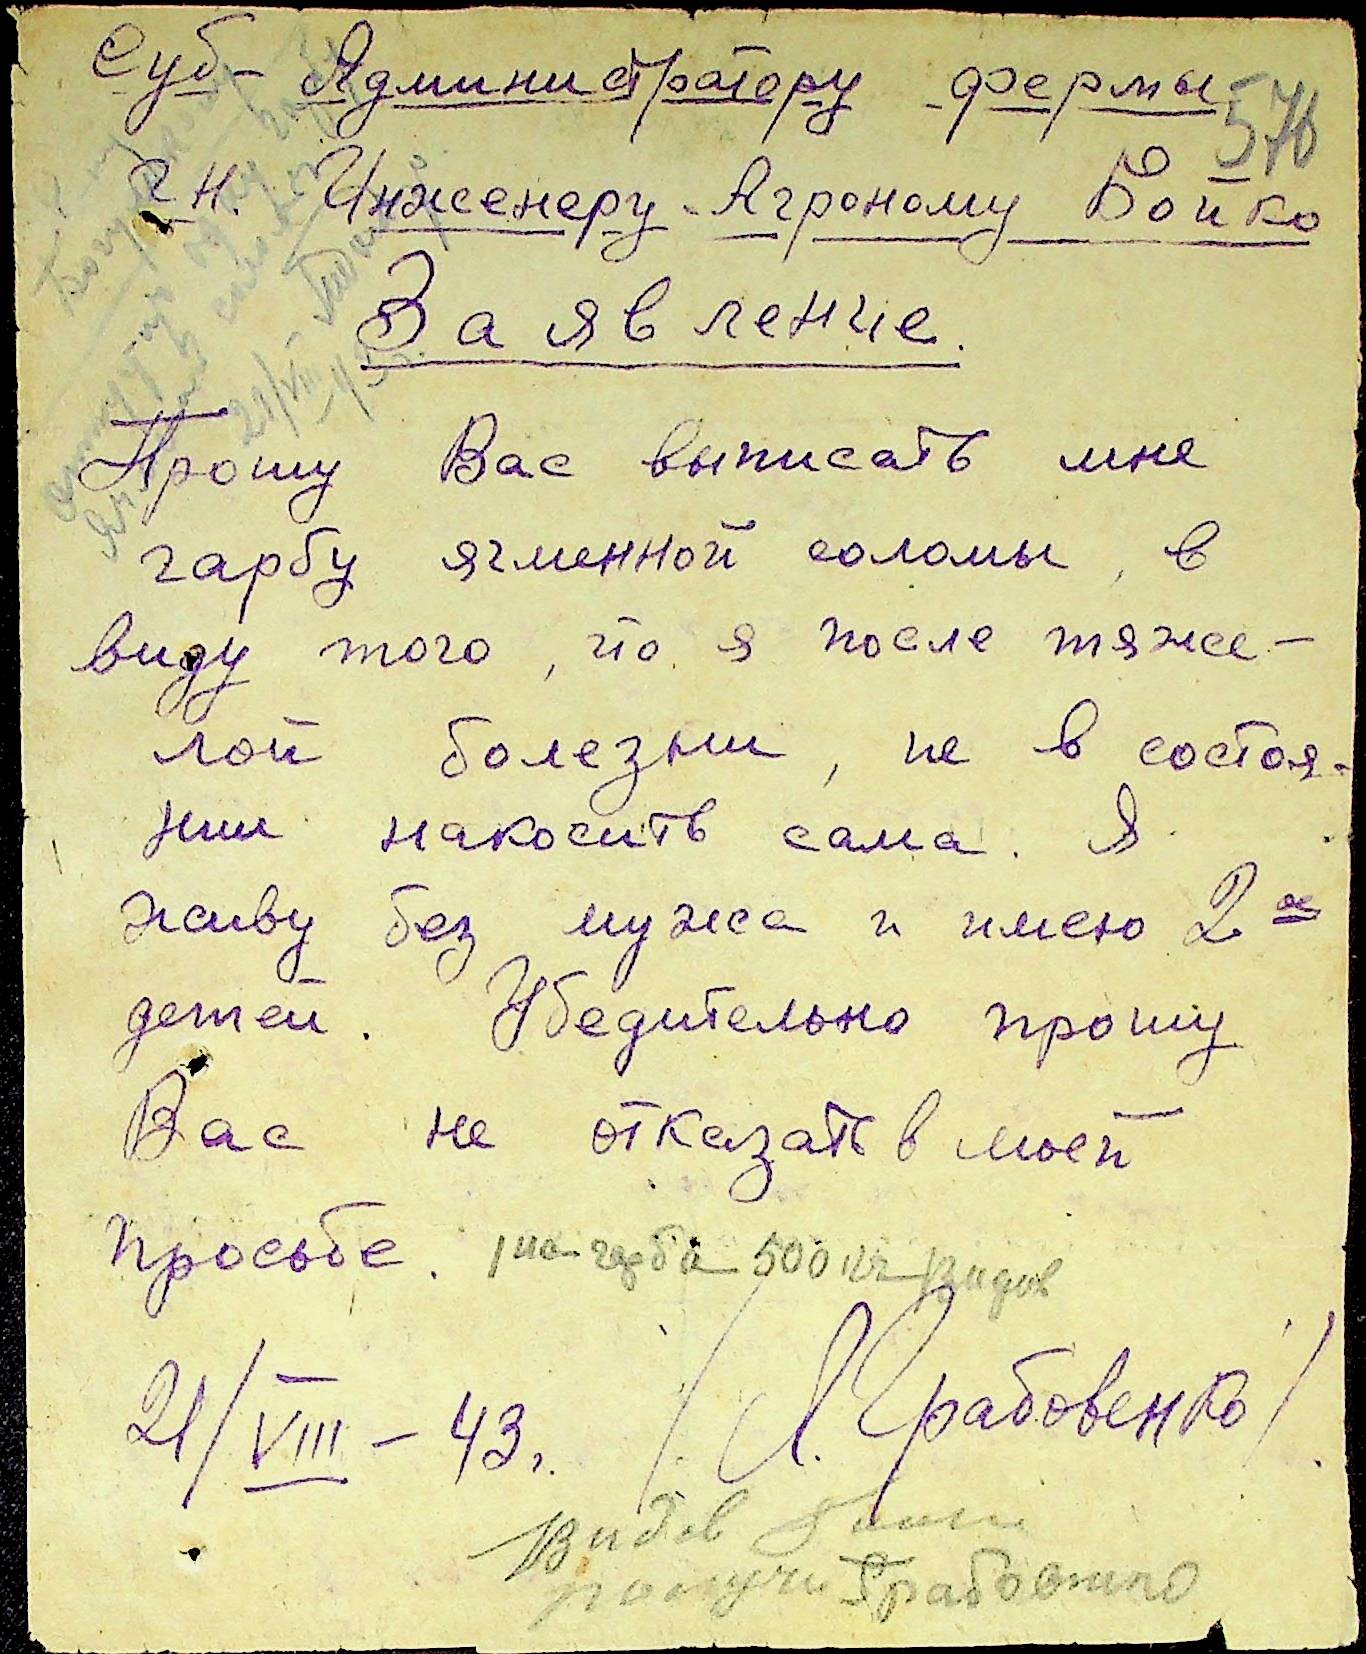 Суб-Администратору фермы
576
гн. Инженеру-Агроному Бойко
Заявление.
Прошу Вас выписать мне
гарбу ячменной соломы, в
виду того, что я после тяже-
лой болезни, не в состоя-
нии накосить сама. Я
живу без мужа и имею 2-х
детей. Убедительно прошу
Вас не отказать в моей
просьбе.
гарба 500 кг
21/VIII-43г. /Л. Грабовенко/.
Видав
получи Грабовенко
21/VIII 43г.